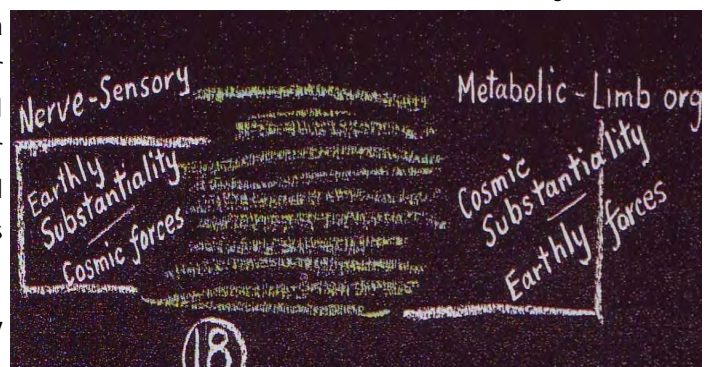 Nerve-Sensory
Earthly
Substantiality
Cosmic forces
Metabolic-Limb org
Cosmic
Substantiality
Earthly forces
18